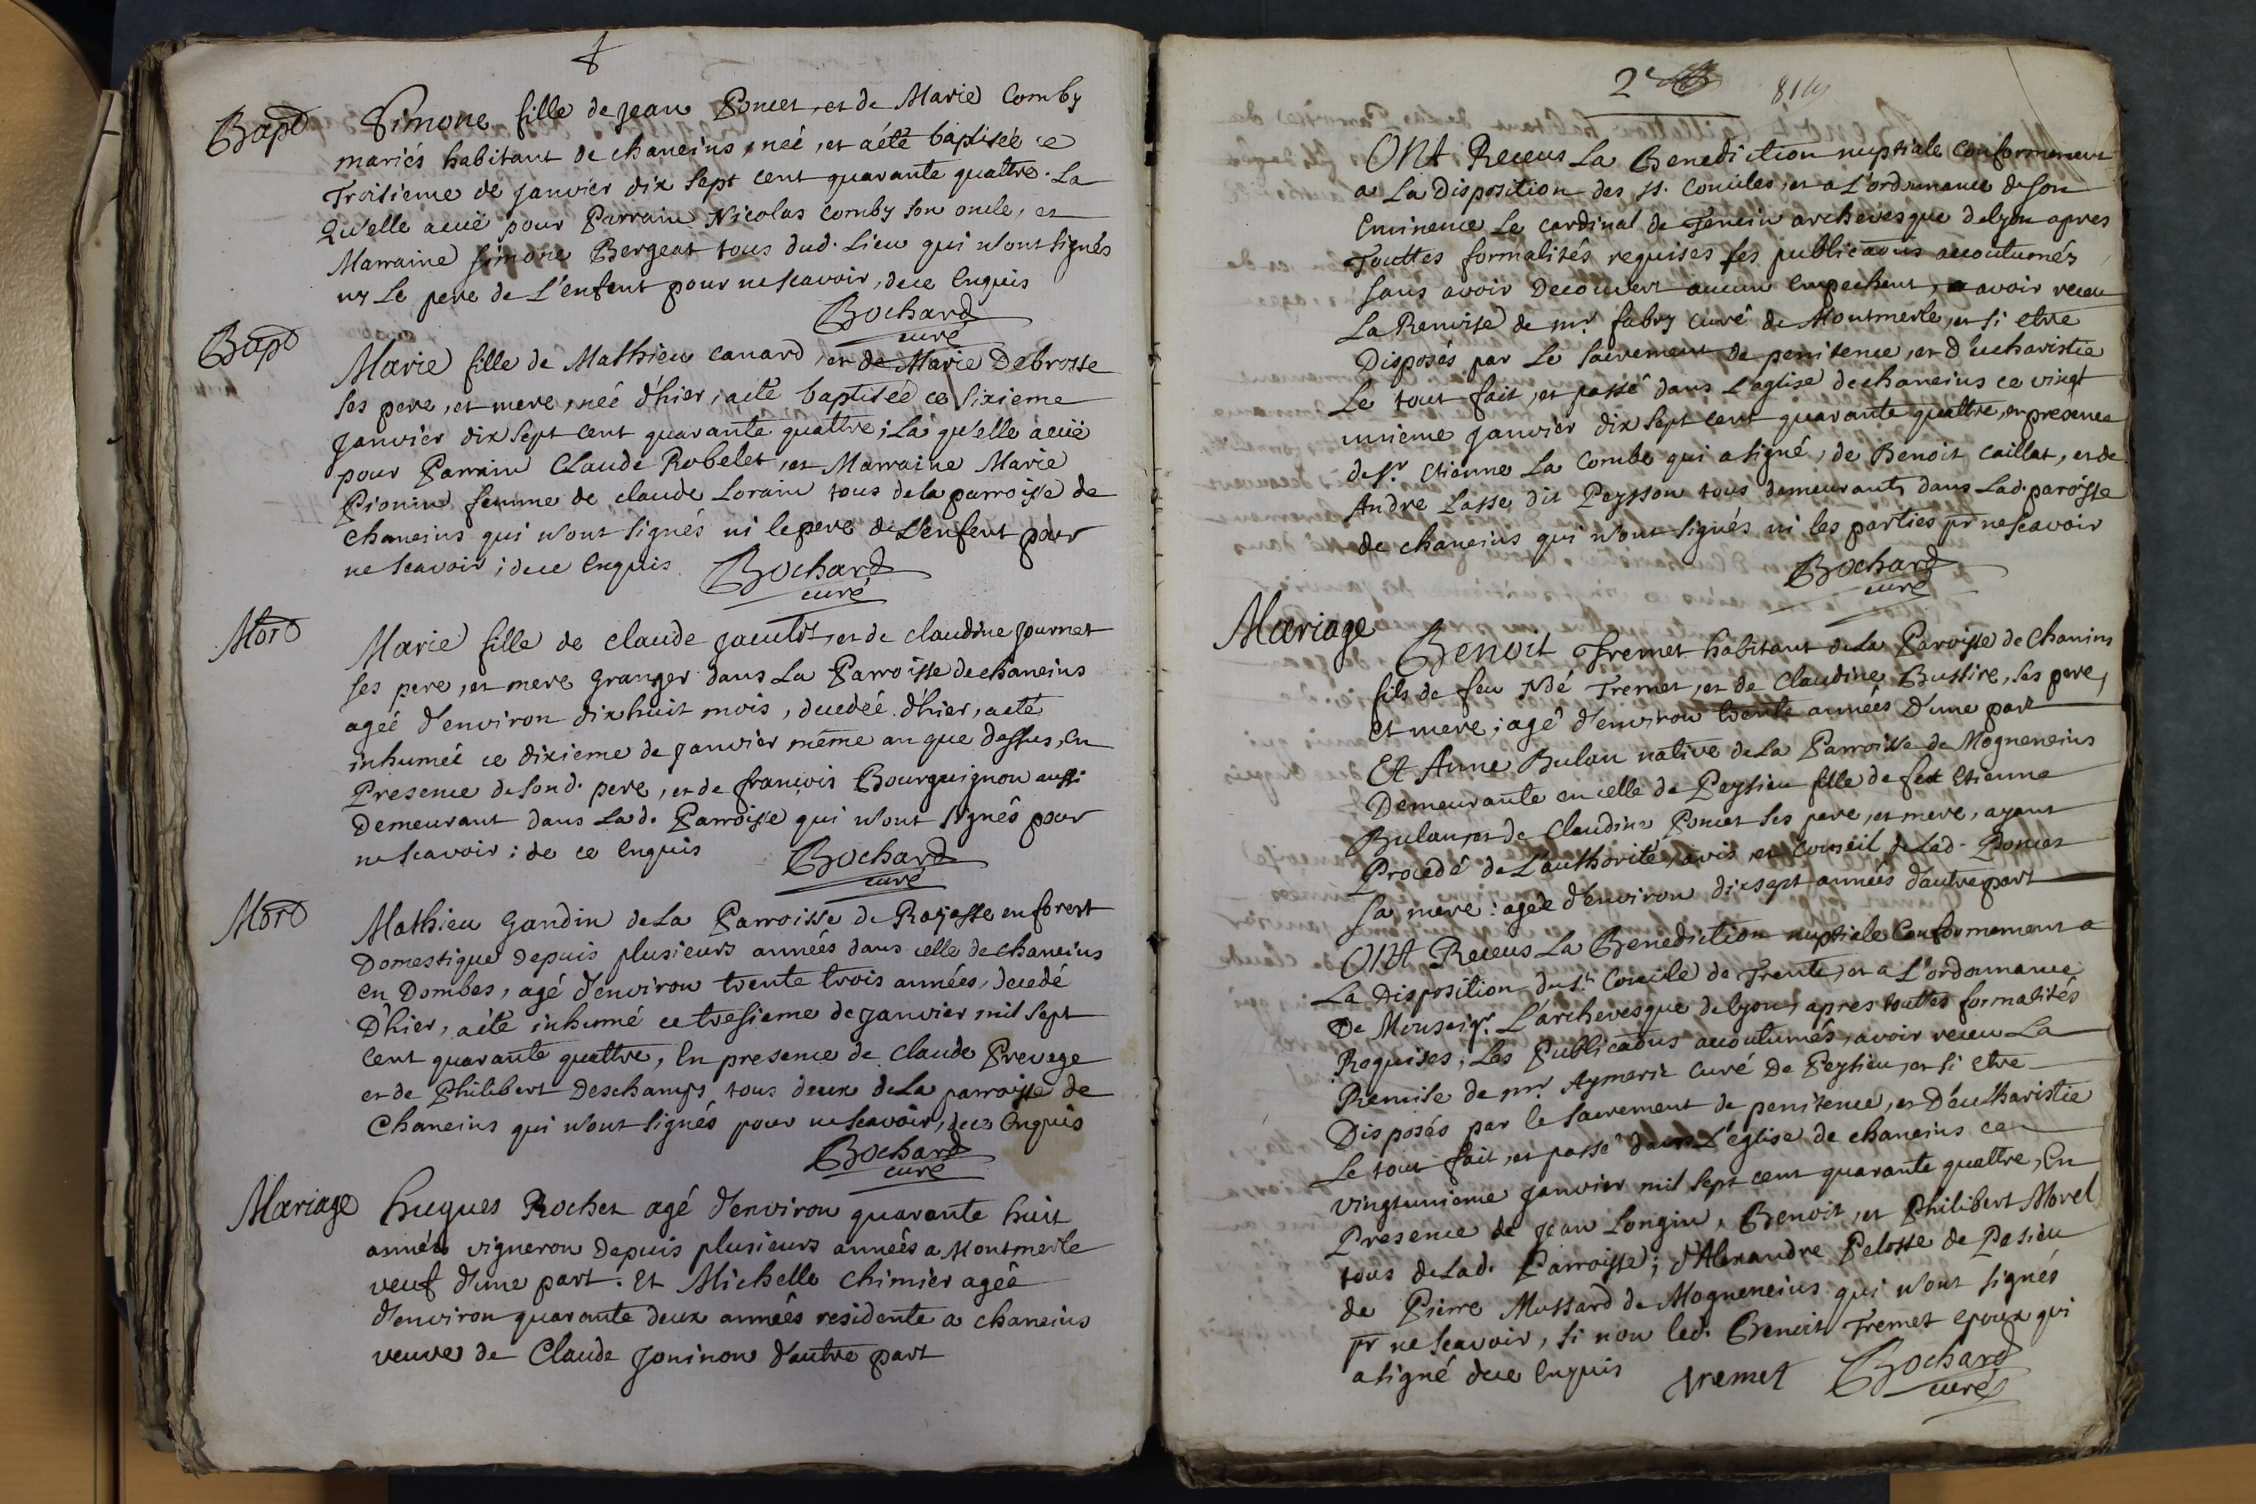 Bapt Simone fille de Jean Poncet, et de Marie Comby
mariés habitant de chaneins, neé, et a été baptiseé ce
Troisieme de janvier dix sept cent quarante quattre. La
Qu'elle a euë pour Parrain Nicolas Comby son oncle, et
Marraine simone Bergeat tous dud. Lieu qui n'ont signés
ny Le pere de L'enfent pour ne scavoir, de ce Enquis
Bochard
curé
Bapt
Marie fille de Mathieu Canard, et de Marie Debrosse
ses pere, et mere, neé d'hier, a eté baptiseé ce sixieme
janvier dix sept cent quarante quattre; La qu'elle a euë
pour Parrain Claude Robelet, et Marraine Marie
Pionin femme de claude Lorain tous de la parroisse de
chaneins qui n'ont signés ni le pere de L'enfent pour
ne scavoir; de ce Enquis Bochard
curé
Mort
Marie fille de claude et de claudine journet
ses pere, et mere granger dans La Parroisse de chaneins
ageé d'environ dixhuit mois, decedeé d'hier, a eté
inhumeé ce dixieme de janvier même an que dessus, en
Presence de son d. pere, et de françois Bourguignon aussi
Demeurant dans La d. Parroisse qui n'ont signés pour
ne scavoir; de ce Enquis Bochard
curé
Mort
Mathieu Gandin de La Parroisse de en forest
Domestique depuis plusieurs années dans celle de chaneins
en Dombes, agé d'environ trente trois années, decedé
D'hier, a été inhumé ce tresieme de janvier mil sept
Cent quarante quattre, En presence de Claude Prevage
et de Philibert Deschamps tous deux de La parroisse de
Chaneins qui n'ont signés pour ne scavoir, de ce Enquis
Bochard
curé
Mariage Hugues Rochet agé d'environ quarante huit
années vigneron Depuis plusieurs années a Montmerle
veuf d'une part. Et Michelle Chimier ageé
d'environ quarante deux années residente a chaneins
veuve de Claude Joninon d'autre part
2e 
ONT Receus La Benediction nuptiale conformement
a La Disposition des st. Conciles, et a L'ordonnance de son
Eminence Le cardinal de Tencin archevesque de lyon apres
Touttes formalités requises les publicaons accoutumés
sans avoir Decouvert aucun Empechent, avoir receu
La Remise de mr. fabry curé de Montmerle, et si etre
Disposés par Le sacrement de penitence, et d'eucharistie
Le tout fait, et passé dans L'eglise de chaneins ce vingt
unieme janvier dix sept cent quarante quattre, en presence
de Sr. Etienne La Combe qui a signé, de Benoit Caillat, et de
Andre Lasse, dit Peysson tous demeurants dans Lad. paroisse
de chaneins qui n'ont signés ni les parties pr ne scavoir
Bochard
curé
Mariage
Benoit Tremet habitant de La Paroisse de Chanins
fils de feu Tremet, et de Claudine Bussire, ses pere,
et mere; agé d'environ trente années D'une part
Et Anne Bulan native de La Parroisse de Mogneneins
Demeurante en celle de Peysieu fille de feu Etienne
Bulan, et de Claudine Poncet ses pere, et mere, ayant
Procedé de L'authorité, avis, et conseil de Lad. Poncet
sa mere: ageé d'environ dixsept années d'autre part
ONT Receus La Benediction nuptiale Conformement a
La Disposition du St. Concile de Trente, et a L'ordonnance
De Monseigr. L'archevesque de lyon, apres touttes formalités
Requises, Les Publicaons accoutumés, avoir receu La
Remise de mr. Aymeric Curé De Peysieu, et si etre
Disposés par le sacrement de penitence, et D'eucharistie
Le tout fait, et passé dans L'eglise de chaneins ce
vingtunieme janvier mil sept cent quarante quattre, En
Presence de Jean Longin, Benoit, et Philibert Morel
tous de Lad. Parroisse; d'Alexandre Pelosse de Pesieu
de Pierre Mussard de Mogneneins qui n'ont signés
pr ne scavoir, si non led. Benoit Tremet epoux qui
a signé de ce Enquis tremet Bochard
curé